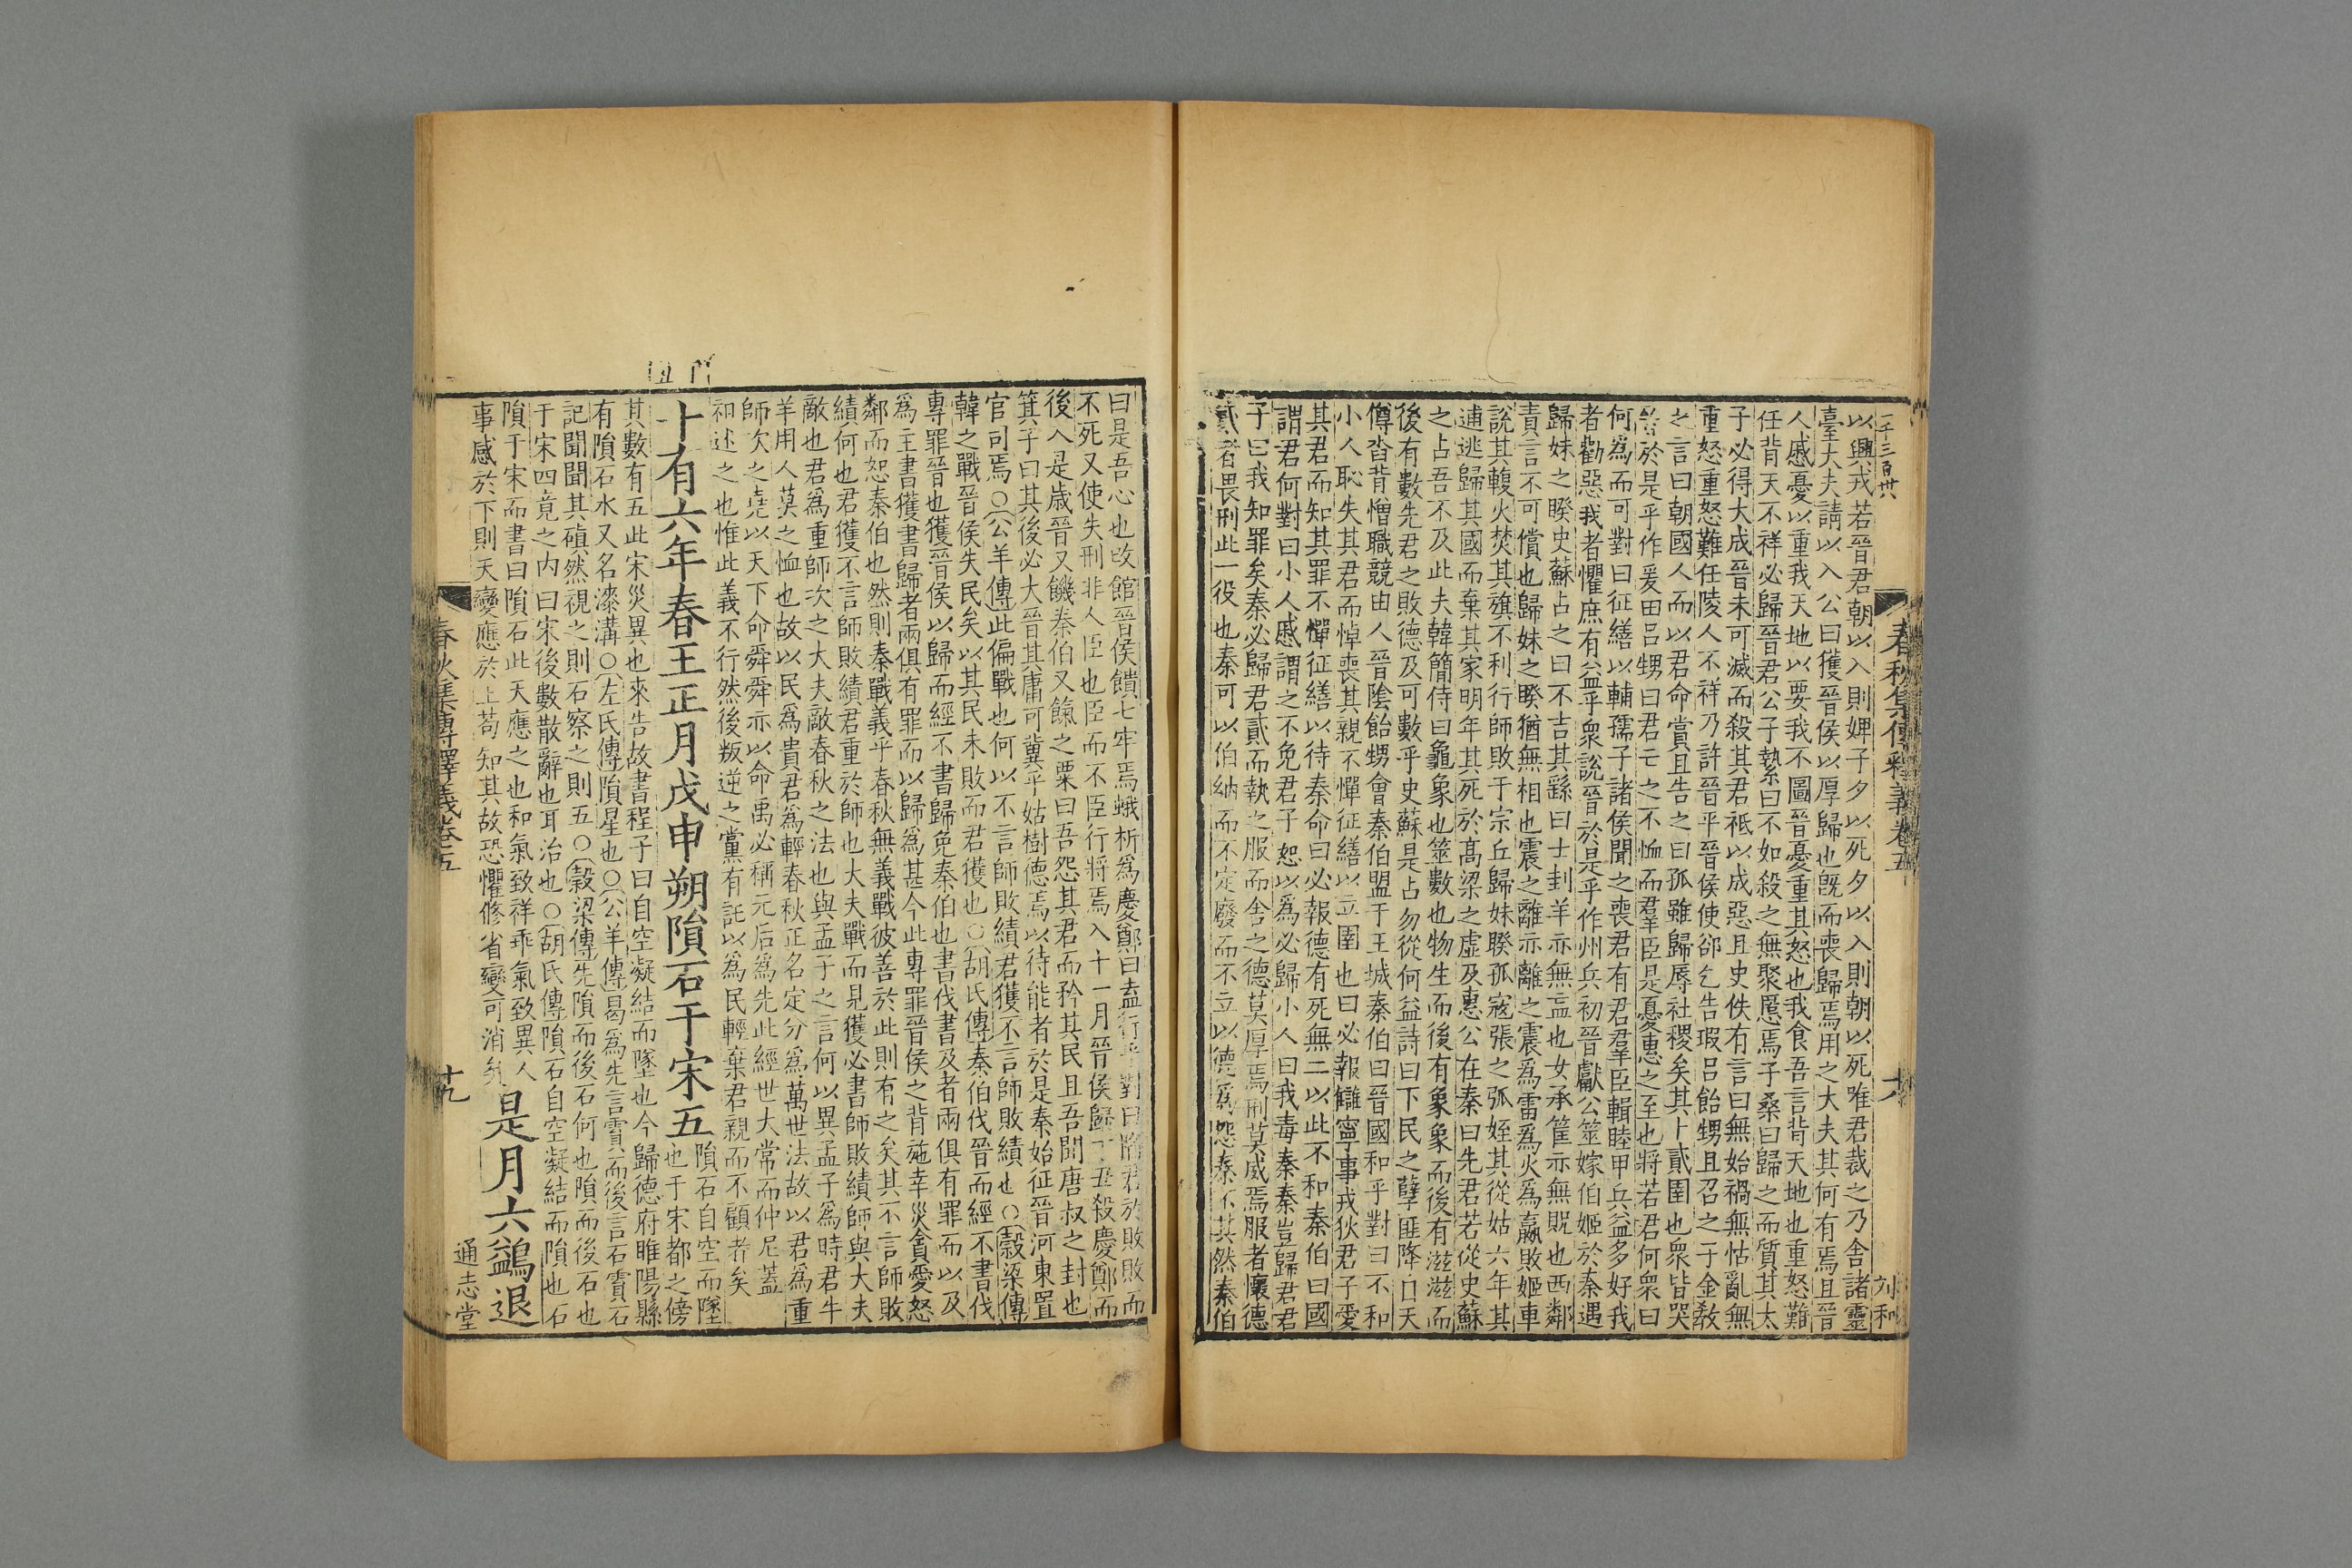 一千三百卅 刘和
春秋集傳釋義卷五
以興戎若晉君朝以入則婢子夕以死夕以入則朝以死唯君裁之乃舍諸靈
臺大夫請以入公曰獲晉侯以厚歸也旣而喪歸焉用之大夫其何有焉且晉
人慼憂以重我天地以要我不圖晉憂重其怒也我食吾言背天地也重怒難
任背天不祥必歸晉君公子縶曰不如殺之無聚慝焉子桑曰歸之而質其太
子必得大成晉未可滅而殺其君祗以成惡且史佚有言曰無始禍無怙亂無
重怒重怒難任陵人不祥乃許晉平晉侯使郤乞告瑕呂飴甥且召之子金敎
之言曰朝國人而以君命賞且告之曰孤雖歸辱社稷矣其卜貳圉也衆皆哭
晉於是乎作爰田呂甥曰君亡之不恤而羣臣是憂惠之至也將若君何衆曰
何爲而可對曰征繕以輔孺子諸侯聞之喪君有君羣臣輯睦甲兵益多好我
者勸惡我者懼庶有益乎衆說晉於是乎作州兵初晉獻公筮嫁伯姬於秦遇
歸妹之睽史蘇占之曰不吉其繇曰士刲羊亦無衁也女承筐亦無貺也西鄰
責言不可償也歸妹之睽猶無相也震之離亦離之震爲雷爲火爲嬴敗姬車
說其輹火焚其旗不利行師敗于宗丘歸妹睽孤寇張之弧姪其從姑六年其
逋逃歸其國而棄其家明年其死於高梁之虛及惠公在秦曰先君若從史蘇
之占吾不及此夫韓簡侍曰龜象也筮數也物生而後有象象而後有滋滋而
後有數先君之敗德及可數乎史蘇是占勿從何益詩曰下民之孽匪降自天
僔沓背憎職競由人晉陰飴甥會秦伯盟于王城秦伯曰晉國和乎對曰不和
小人恥失其君而悼喪其親不憚征繕以立圉也曰必報讎寧事戎狄君子愛
其君而知其罪不憚征繕以待秦命曰必報德有死無二以此不和秦伯曰國
謂君何對曰小人慼謂之不免君子恕以爲必歸小人曰我毒秦秦豈歸君君
子曰我知罪矣秦必歸君貳而執之服而舍之德莫厚焉刑莫威焉服者懷德
貳者畏刑此一役也秦可以伯納而不定廢而不立以德爲怨秦不其然秦伯
曰是吾心也改館晉侯饋七牢焉蛾析爲慶鄭曰盍行乎對曰陷君於敗敗而
不死又使失刑非人臣也臣而不臣行將焉入十一月晉侯歸丁丑殺慶鄭而
後入是歲晉又饑秦伯又餼之粟曰吾怨其君而矜其民且吾聞唐叔之封也
箕子曰其後必大晉其庸可冀乎姑樹德焉以待能者於是秦始征晉河東置
官司焉○公羊傳此偏戰也何以不言師敗績君獲不言師敗績也○穀梁傳
韓之戰晉侯失民矣以其民未敗而君獲也○胡氏傳秦伯伐晉而經不書伐
專罪晉也獲晉侯以歸而經不書歸免秦伯也書伐書及者兩俱有罪而以及
爲主書獲書歸者兩俱有罪而以歸爲甚今此專罪晉侯之背施幸災貪愛怒
鄰而恕秦伯也然則秦戰義乎春秋無義戰彼善於此則有之矣其不言師敗
績何也君獲不言師敗績君重於師也大夫戰而見獲必書師敗績師與大夫
敵也君爲重師次之大夫敵春秋之法也與孟子之言何以異孟子爲時君牛
羊用人莫之恤也故以民爲貴君爲輕春秋正名定分爲萬世法故以君爲重
師次之堯以天下命舜舜亦以命禹必稱元后爲先此經世大常而仲尼蓋
祖述之也惟此義不行然後叛逆之黨有託以爲民輕棄君親而不顧者矣
十有六年春王正月戊申朔隕石于宋五
隕石自空而墜
也于宋都之傍
其數有五此宋災異也來告故書程子曰自空凝結而墜也今歸德府睢陽縣
有隕石水又名漆溝○左氏傳隕星也○公羊傳曷爲先言霣而後言石霣石
記聞聞其磌然視之則石察之則五○穀梁傳先隕而後石何也隕而後石也
于宋四竟之内曰宋後數散辭也耳治也○胡氏傳隕石自空凝結而隕也石
隕于宋而書曰隕石此天應之也和氣致祥乖氣致異人
事感於下則天變應於上苟知其故恐懼修省變可消矣
是月六鷁退
春秋集傳釋義卷五
十九
通志堂